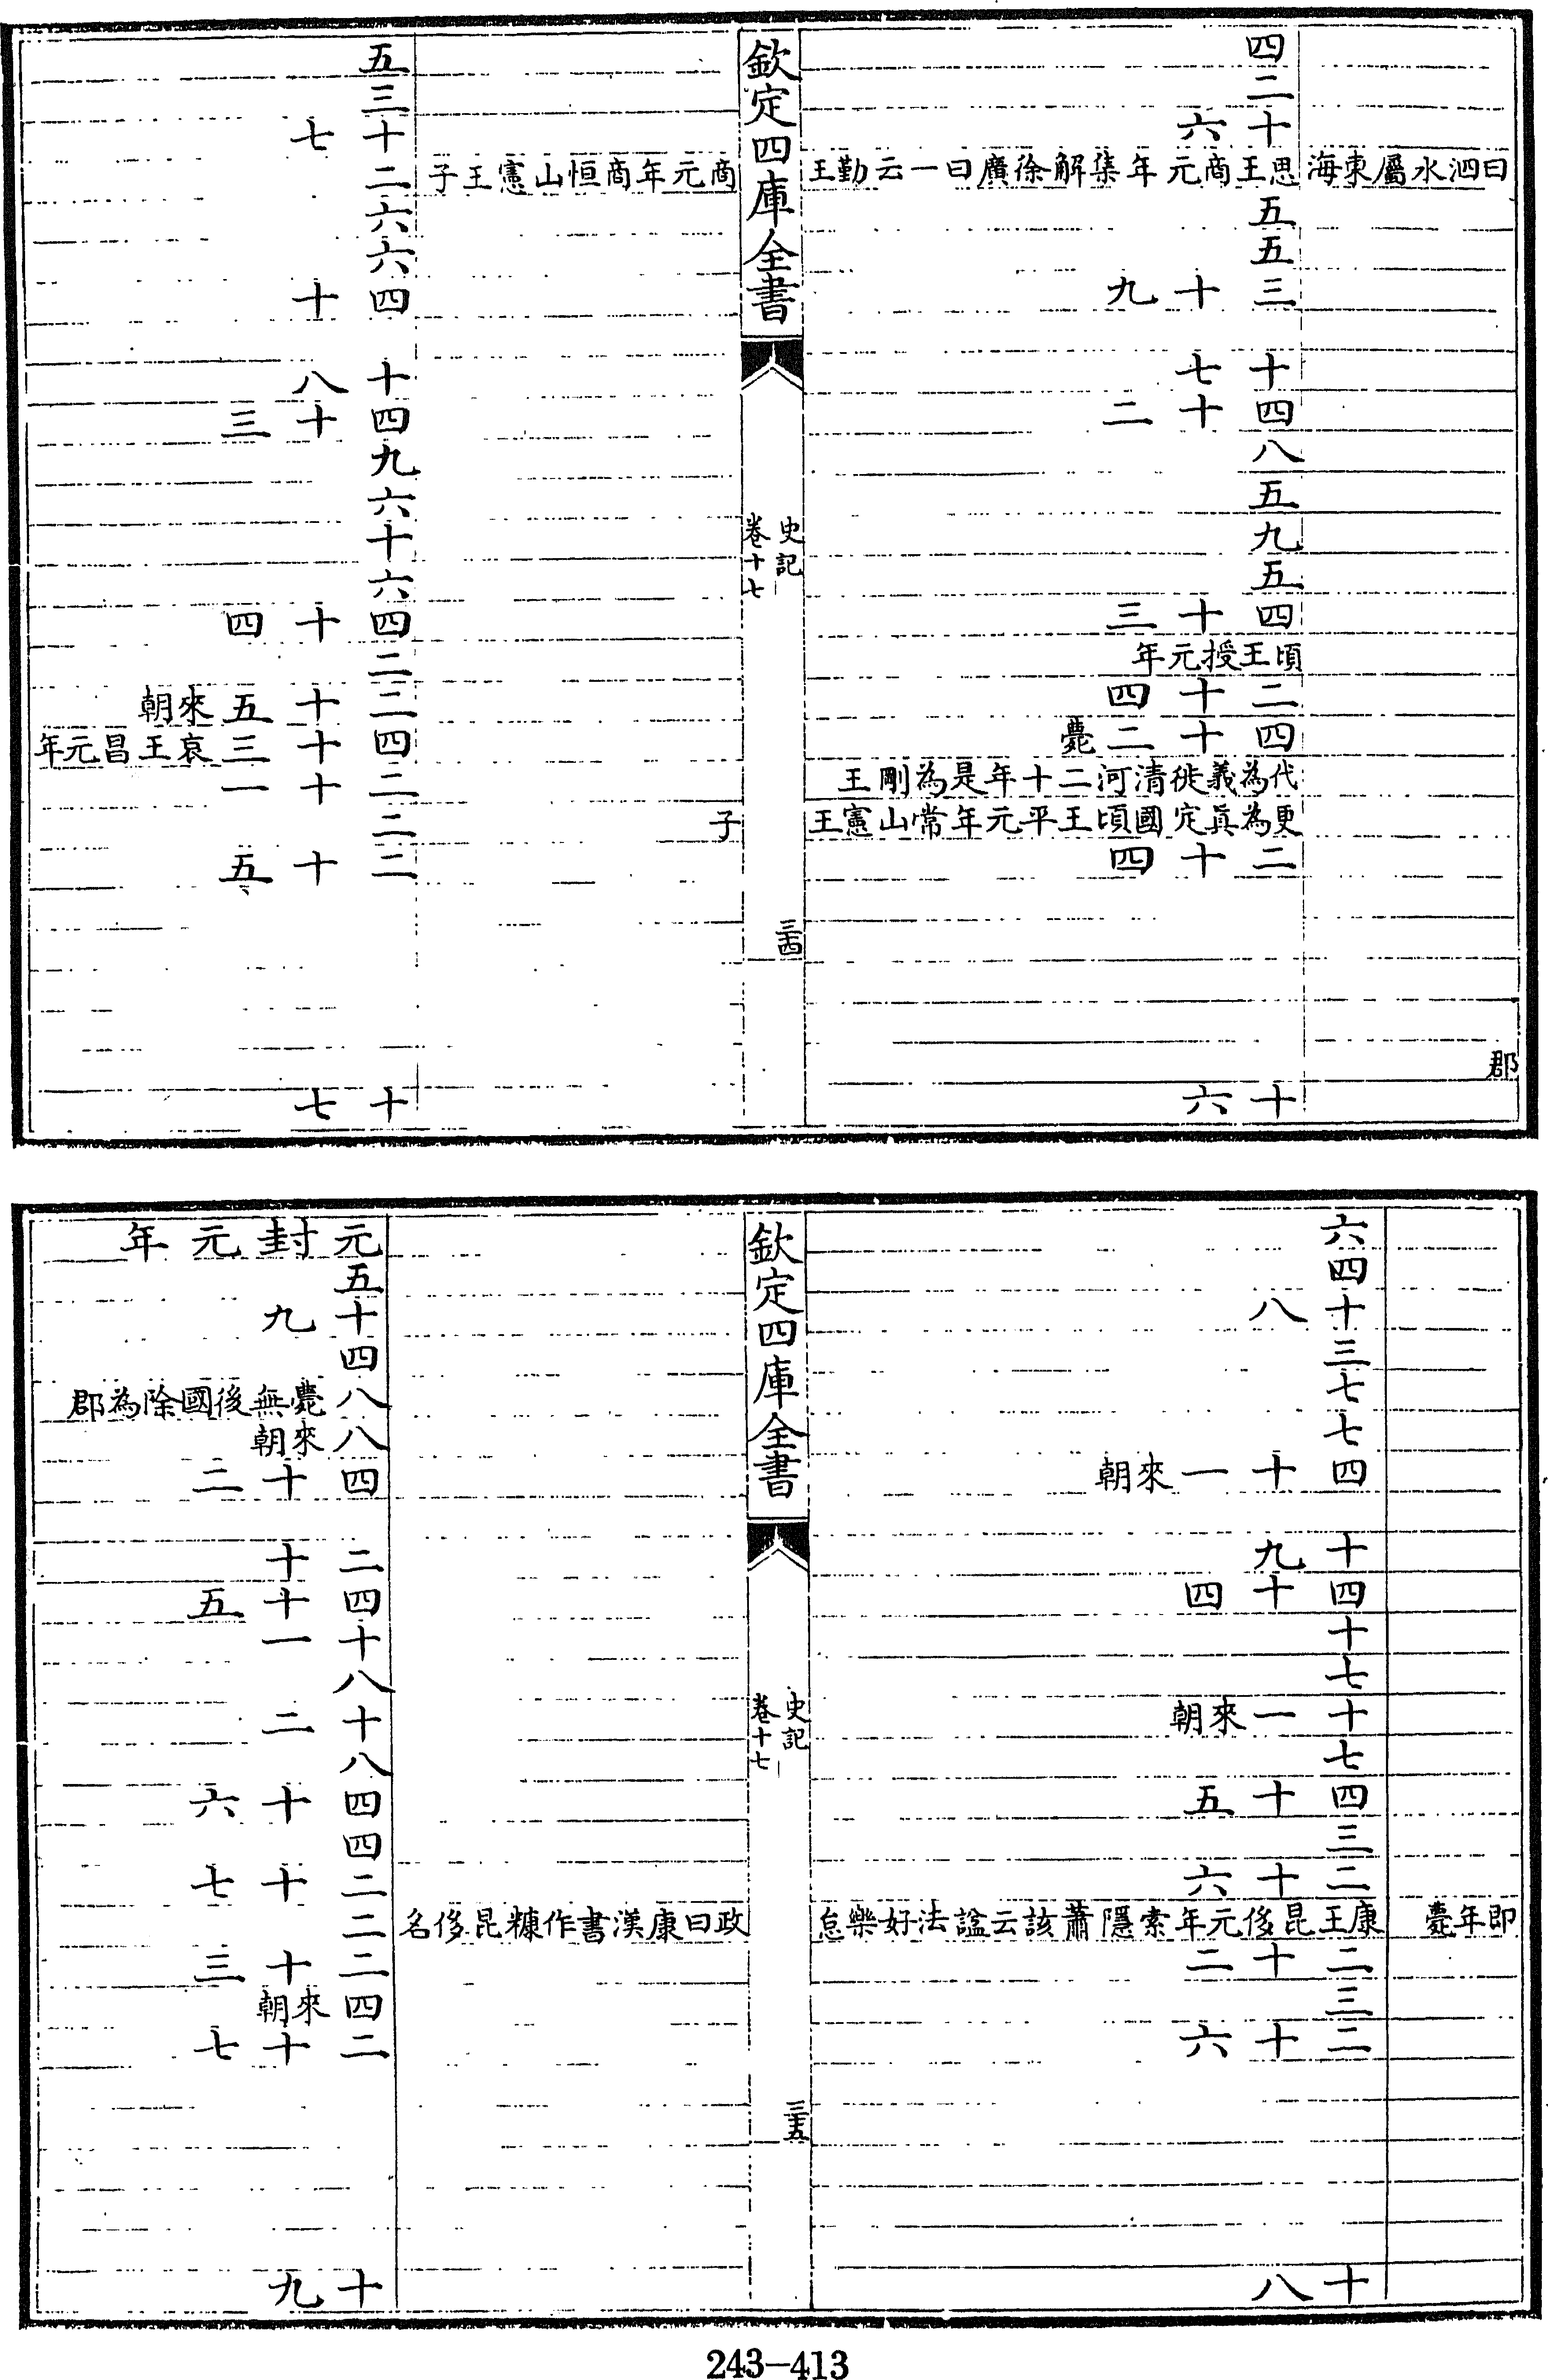 曰泗水屬東海
郡
四
二
十六
思王商元年集解徐廣曰一云勤王商元年商恒山憲王子
五
五
三十九
十七
四十二
八
五
九
五
四十三
頃王授元年
二十四
四十二薨
代為義徙清河二十年是為剛王
更為眞定國頃王平元年常山憲王子
二十四
十六
欽定四庫全書
史記
卷十七
三十四
五
三
十七
二
六
六
四十
十八
四十三
九
六
十
六
四十四
二
二十五來朝
四十三哀王昌元年
二十一
二
二十五
十七
即年薨
六
四
十八
三
七
七
四十一來朝
十九
四十四
十
七
十一來朝
七
四十五
三
二十六
康王昆侈元年索隱蕭該云諡法好樂怠政曰康漢書作糠昆侈名
二十二
三
二十六
十八
欽定四庫全書
史記
卷十七
三十五
元封元年
五
十九
四
八薨無後國除為郡
八來朝
四十二
二十
四十五
十一
八
十二
八
四十六
四
二十七
二
二十三
四來朝
二十七
十九
243-413